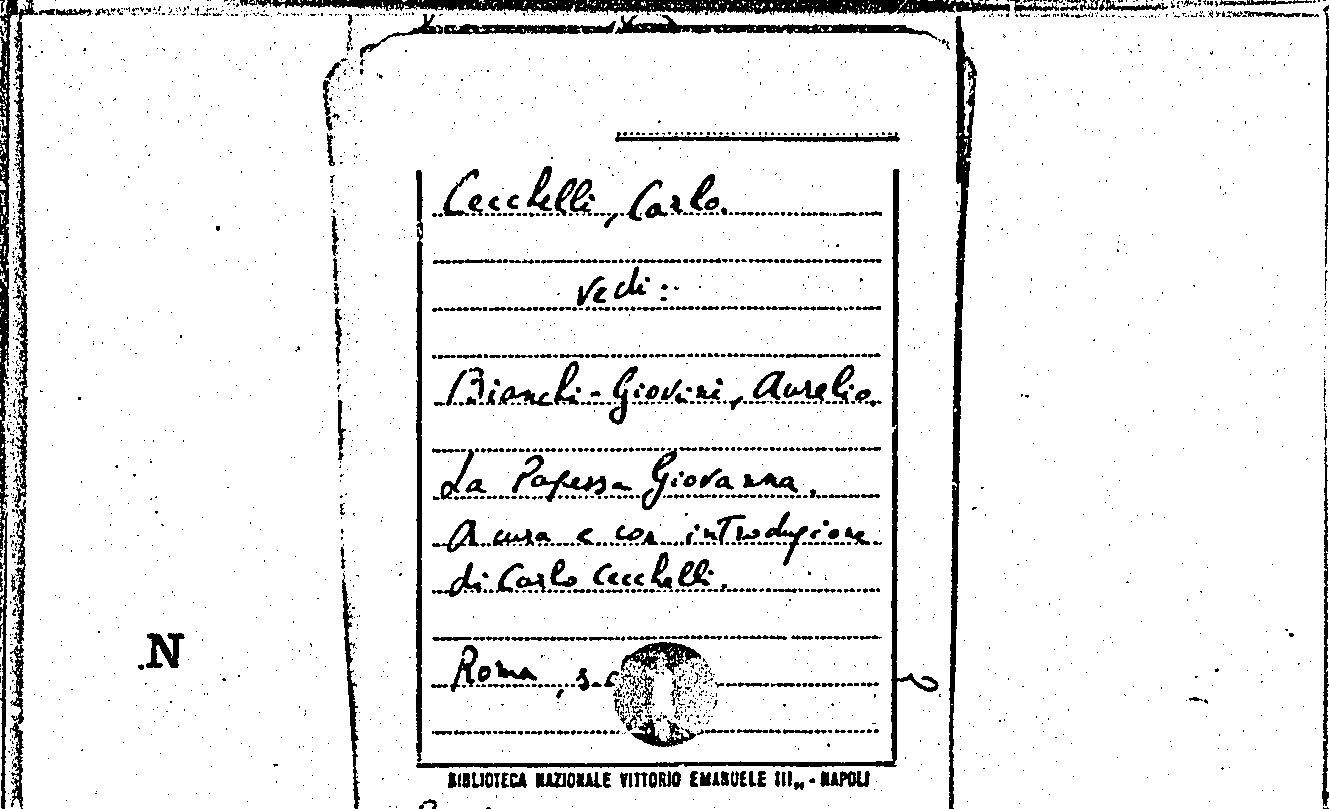 Cecchelli, Carlo.
vedi:
Bianchi-Giovini, Aurelio.
La Papessa Giovanna.
A cura e con introduzione
di Carlo Cecchelli.
Roma, s.
.N
BIBLIOTECA NAZIONALE VITTORIO EMANUELE III,, - NAPOLI